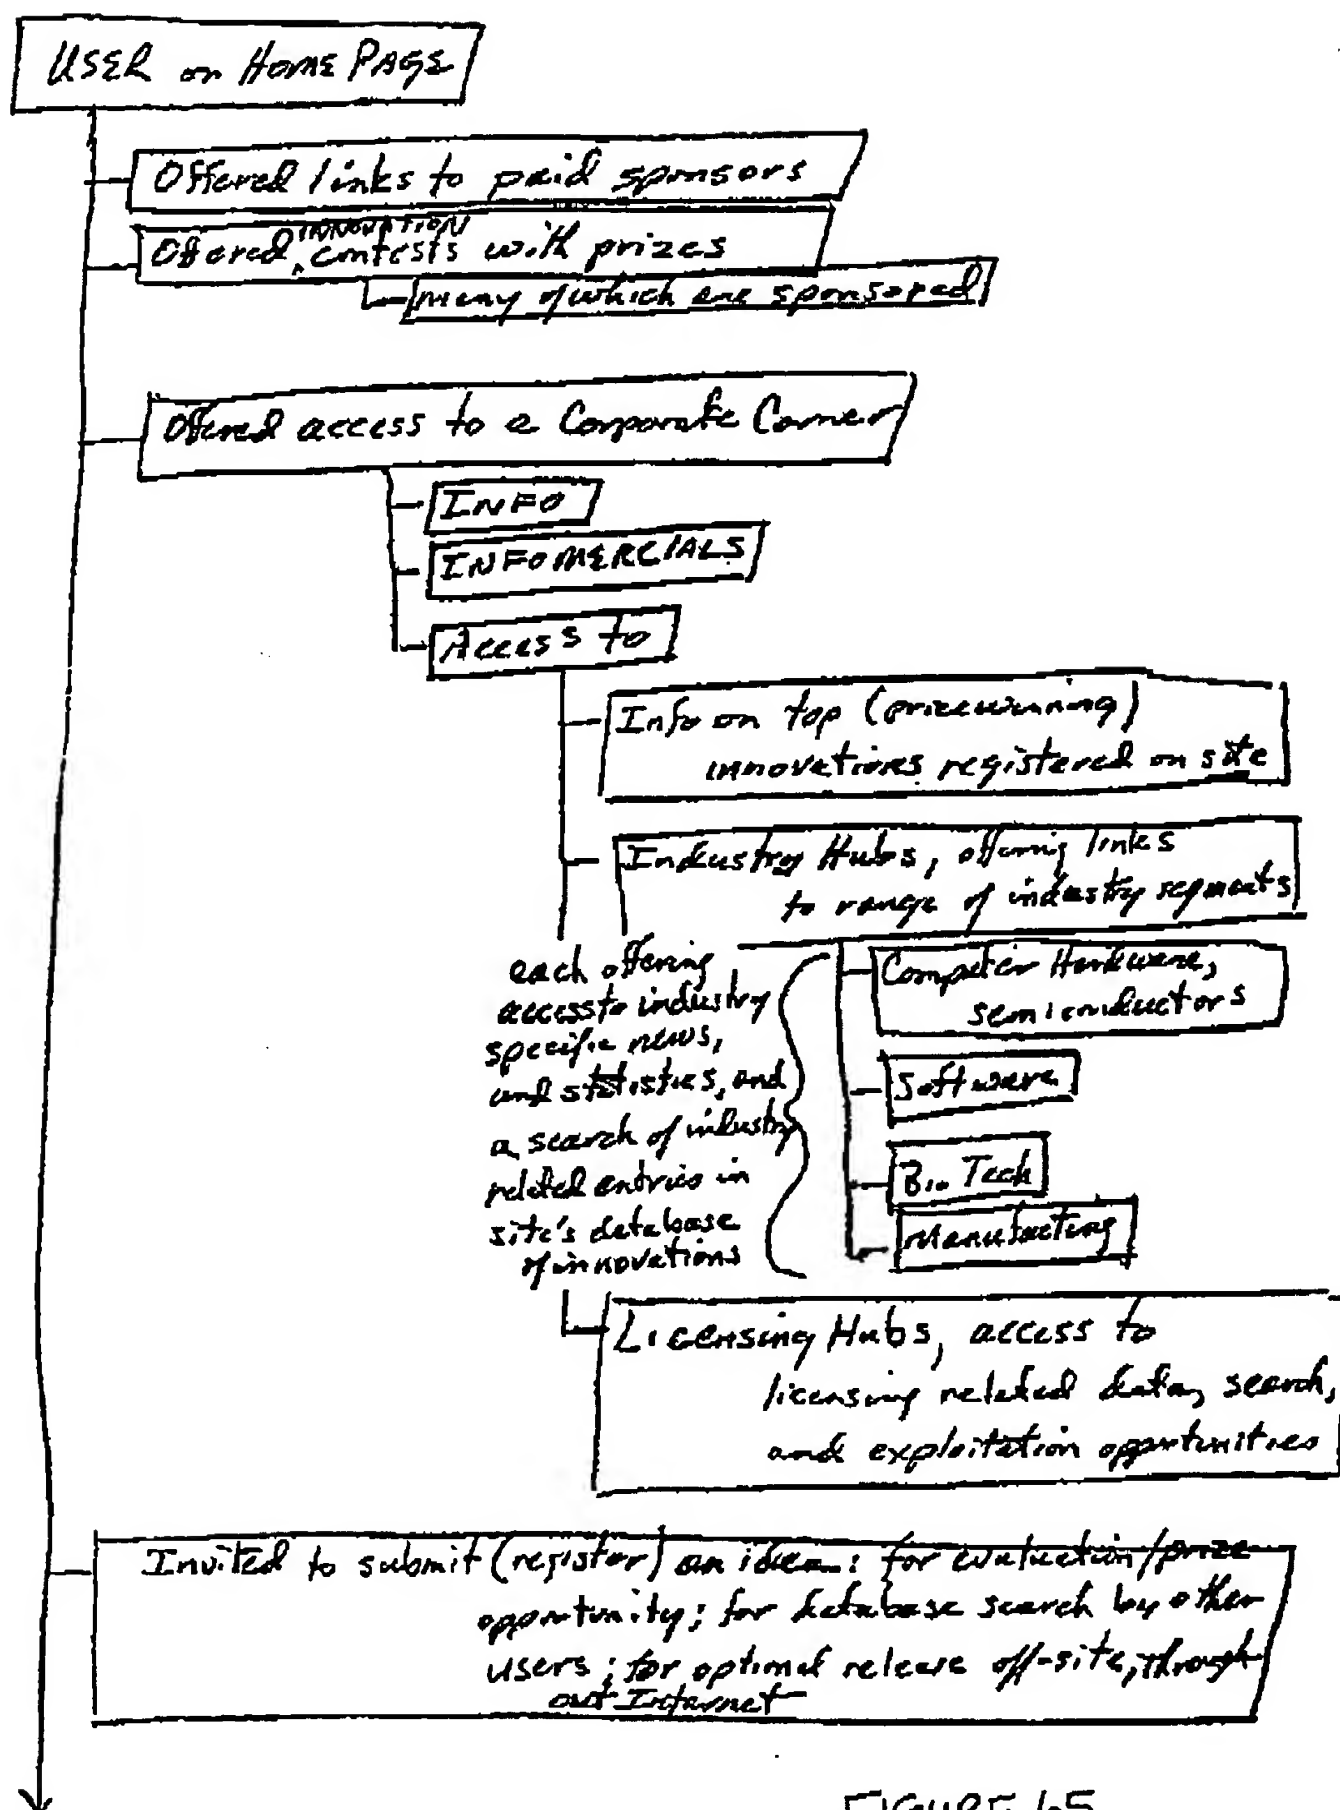 USER on HOME PAGE
Offered links to paid sponsors
INNOVATION
Offered ^ contests with prizes
many of which are sponsored
Offered access to a Corporate Corner
INFO
INFOMERCIALS
Access to
Info on top (prizewinning)
innovations registered on site
Industry Hubs, offering links
to range of industry segments
each offering
access to industry
specific news,
and statistics, and
a search of industry
related entries in
site's database
of innovations
Computer Hardware,
semiconductors
Software
Bio Tech
Manufacturing
Licensing Hubs, access to
licensing related data, search,
and exploitation opportunities
Invited to submit (register) an idea: for evaluation/prize
opportunity; for database search by other
users; for optimal release off-site, through
out Internet
FIGURE 65